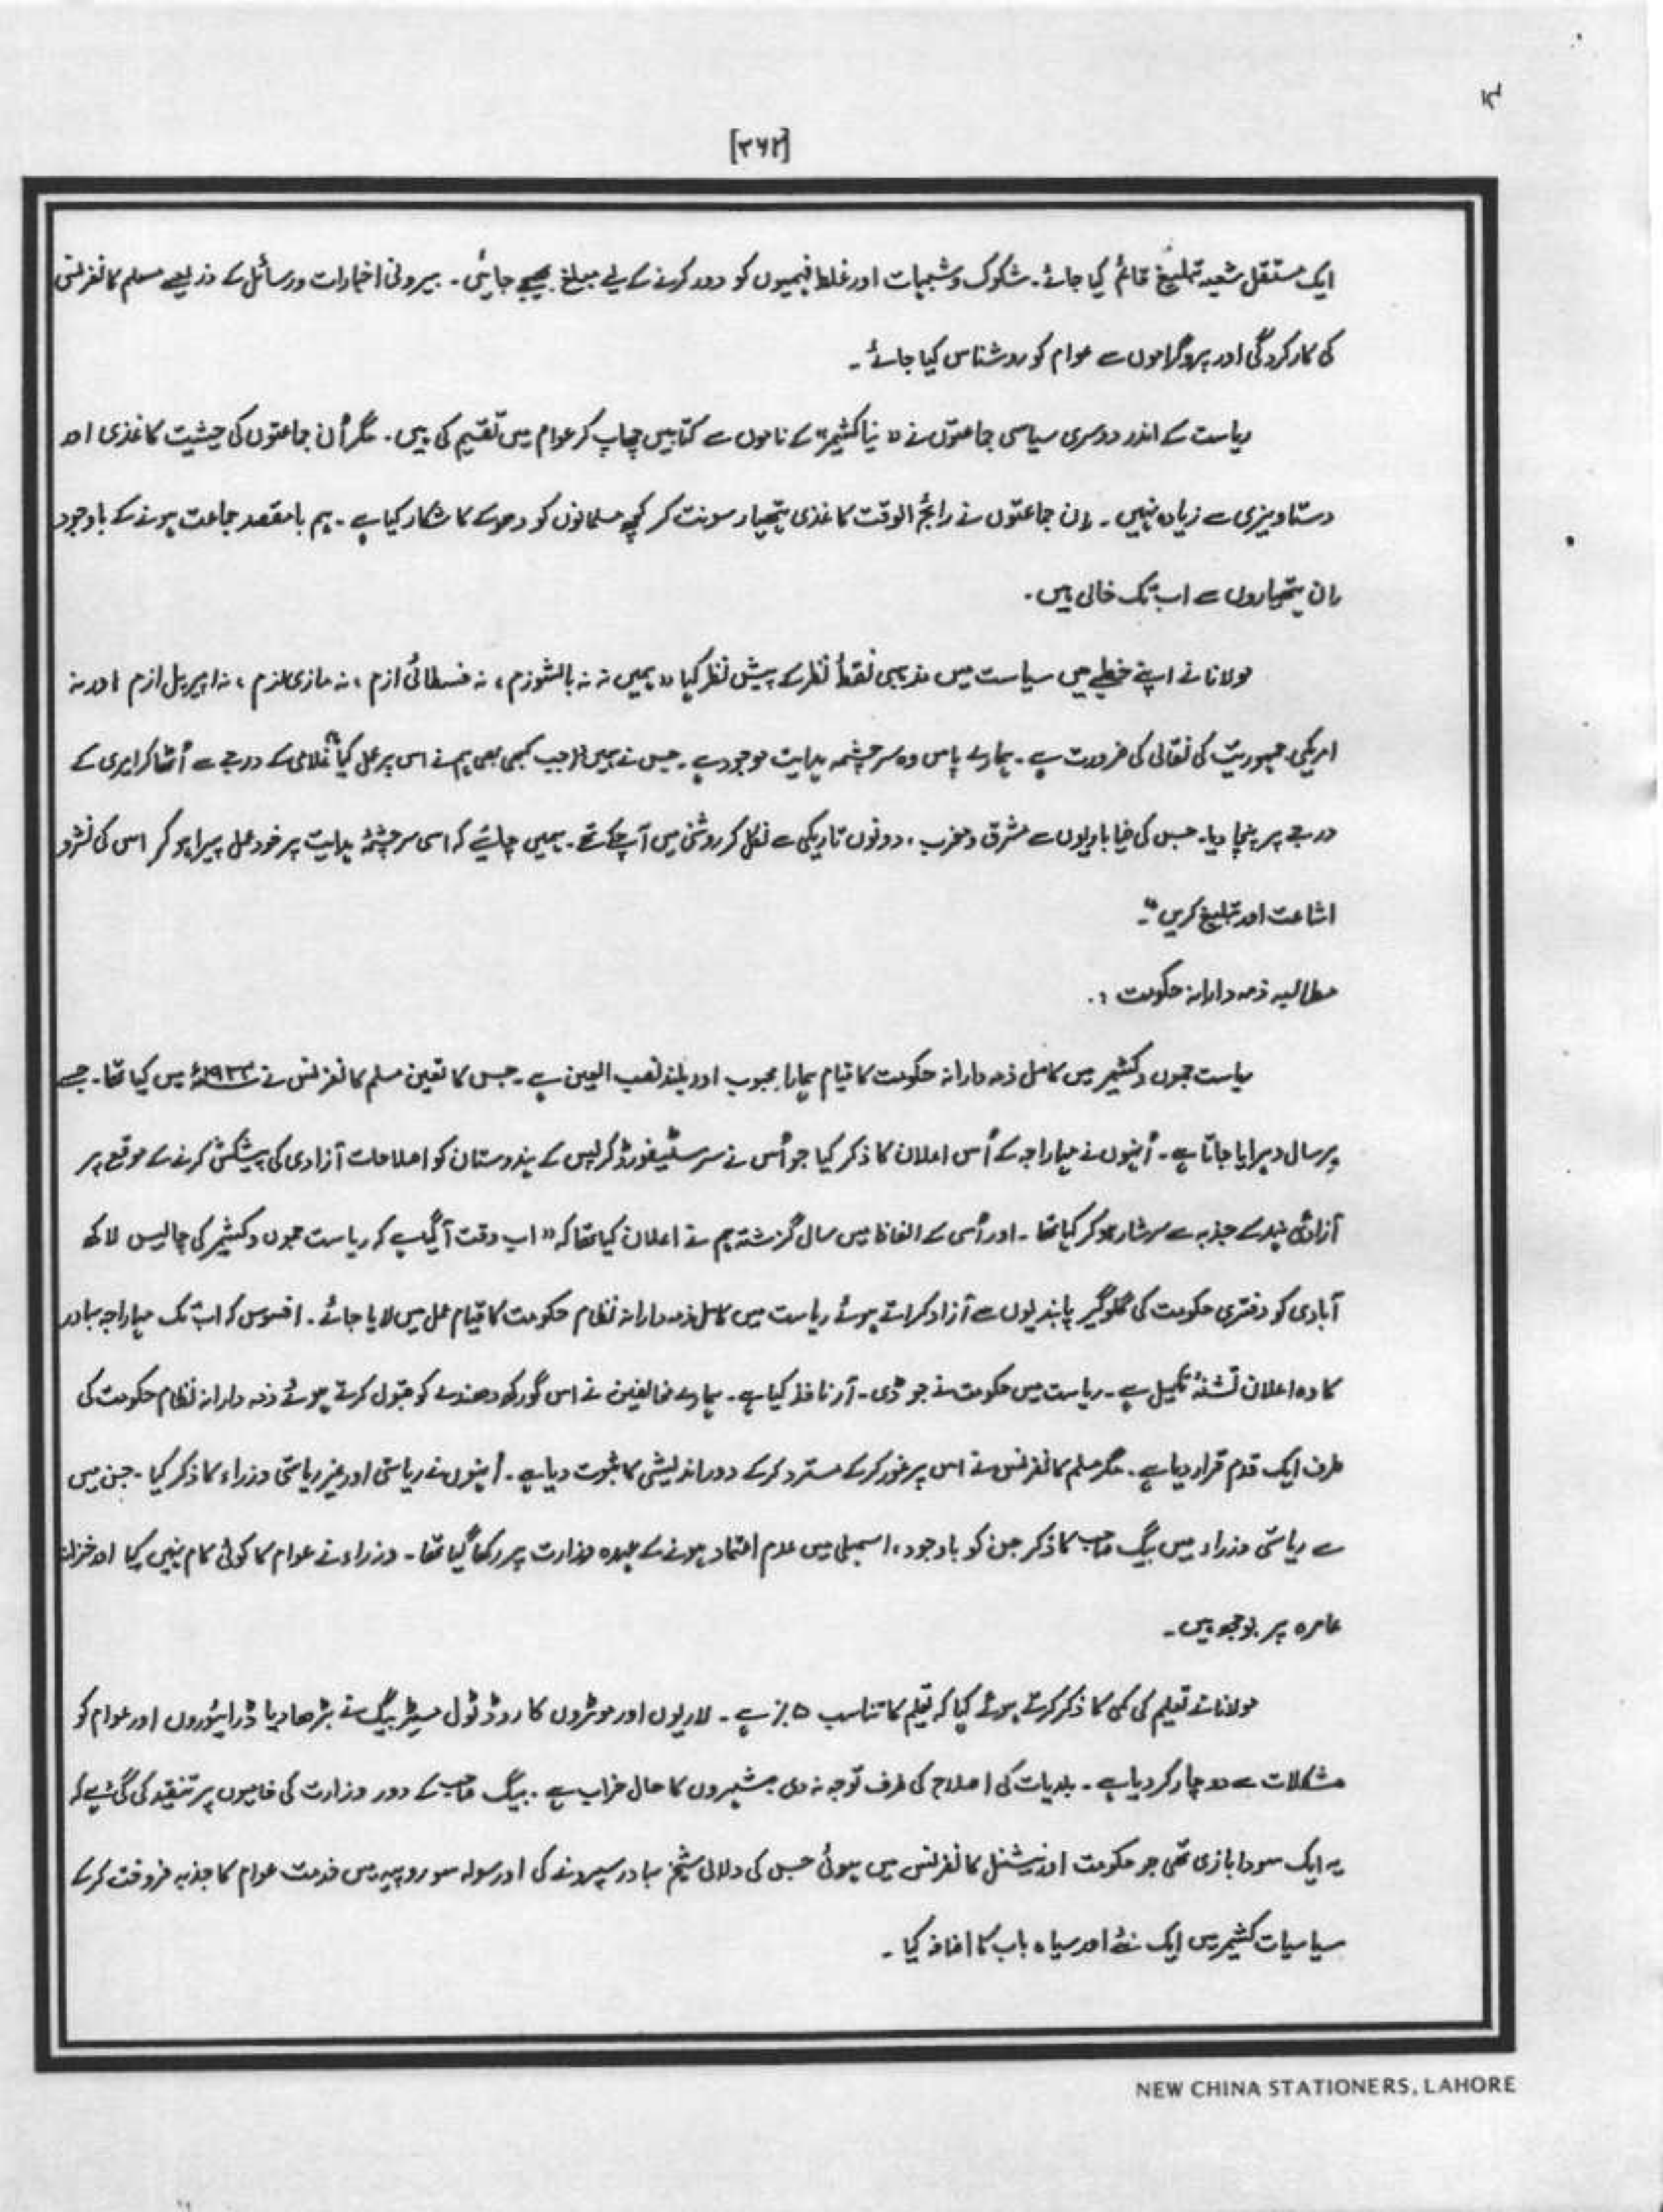 [۳۶۲]
ایک مستقل شعبہ تبلیغ قائم کیا جائے۔ شکوک و شبہات اور غلط فہمیوں کو دور کرنے کے لیے مبلغ بھیجے جائیں۔ بیرونی اخبارات و رسائل کے ذریعے مسلم کانفرنس
کی کارکردگی اور پروگراموں سے عوام کو روشناس کیا جائے۔
ریاست کے اندر دوسری سیاسی جماعتوں نے "نیا کشمیر" کے ناموں سے کتابیں چھاپ کر عوام میں تقسیم کی ہیں۔ مگر اُن جماعتوں کی حیثیت کاغذی اور
دستاویزی سے زیادہ نہیں۔ اِن جماعتوں نے رائج الوقت کاغذی ہتھیار سونت کر کچھ مسلمانوں کو دھوکے کا شکار کیا ہے۔ ہم بامقصد جماعت ہونے کے باوجود
اِن ہتھیاروں سے اب تک خالی ہیں۔
مولانا نے اپنے خطبے میں سیاست میں مذہبی نقطۂ نظر کے پیش نظر کہا "ہمیں نہ نہ بالشوزم، نہ فسطائی ازم، نہ نازی ازم، نہ امپیریل ازم اور نہ
امریکی جمہوریت کی نقالی کی ضرورت ہے۔ ہمارے پاس وہ سرچشمہ ہدایت موجود ہے۔ جس نے ہمیں (جب کبھی بھی ہم نے اس پر عمل کیا) غلامی کے درجے سے اُٹھا کر امیری کے
درجے پر پہنچا دیا۔ جس کی ضیاباریوں سے مشرق و مغرب، دونوں تاریکی سے نکل کر روشنی میں آ چکے تھے۔ ہمیں چاہئے کہ اسی سرچشمۂ ہدایت پر خود عمل پیرا ہو کر اس کی نشر و
اشاعت اور تبلیغ کریں"۔
مطالبہ ذمہ دارانہ حکومت :۔
ریاست جموں و کشمیر میں کامل ذمہ دارانہ حکومت کا قیام ہمارا محبوب اور بلند نصب العین ہے۔ جس کا تعین مسلم کانفرنس نے میں کیا تھا۔ جسے
ہر سال دہرایا جاتا ہے۔ اُنہوں نے مہاراجہ کے اُس اعلان کا ذکر کیا جو اُس نے سر سٹیفورڈ کرپس کے ہندوستان کو اصلاحات آزادی کی پیشکش کرنے کے موقع پر
آزادئ ہند کے جذبہ سے سرشار ہو کر کیا تھا۔ اور اُسی کے الفاظ میں سال گزشتہ ہم نے اعلان کیا تھا کہ "اب وقت آ گیا ہے کہ ریاست جموں و کشمیر کی چالیس لاکھ
آبادی کو دفتری حکومت کی گلوگیر پابندیوں سے آزاد کراتے ہوئے ریاست میں کامل ذمہ دارانہ نظام حکومت کا قیام عمل میں لایا جائے۔ افسوس کہ اب تک مہاراجہ بہادر
کا وہ اعلان تشنۂ تکمیل ہے۔ ریاست میں حکومت نے جو ڈی۔ آر نافذ کیا ہے۔ ہمارے مخالفین نے اس گورکھ دھندے کو قبول کرتے ہوئے ذمہ دارانہ نظام حکومت کی
طرف ایک قدم قرار دیا ہے۔ مگر مسلم کانفرنس نے اس پر غور کر کے مسترد کر کے دوراندیشی کا ثبوت دیا ہے۔ اُنہوں نے ریاستی اور غیر ریاستی وزراء کا ذکر کیا۔ جن میں
سے ریاستی وزراء میں بیگ صاحب کا ذکر جن کو باوجود، اسمبلی میں عدم اعتماد ہونے کے عہدہ وزارت پر رکھا گیا تھا۔ وزراء نے عوام کا کوئی کام نہیں کیا اور خزانہ
عامرہ پر بوجھ ہیں۔
مولانا نے تعلیم کی کمی کا ذکر کرتے ہوئے کہا کہ تعلیم کا تناسب ۵٪ ہے۔ لاریوں اور موٹروں کا روڈ ٹول مسٹر بیگ نے بڑھا دیا ڈرائیوروں اور عوام کو
مشکلات سے دوچار کر دیا ہے۔ بلدیات کی اصلاح کی طرف توجہ نہ دی۔ شہروں کا حال خراب ہے۔ بیگ صاحب کے دور وزارت کی خامیوں پر تنقید کی گئی ہے کہ
یہ ایک سودا بازی تھی جو حکومت اور نیشنل کانفرنس میں ہوئی جس کی دلالی شیخ بہادر سپرو نے کی اور سولہ سو روپیہ میں خدمت عوام کا جذبہ فروخت کر کے
سیاسیات کشمیر میں ایک نئے اور سیاہ باب کا اضافہ کیا۔
NEW CHINA STATIONERS, LAHORE